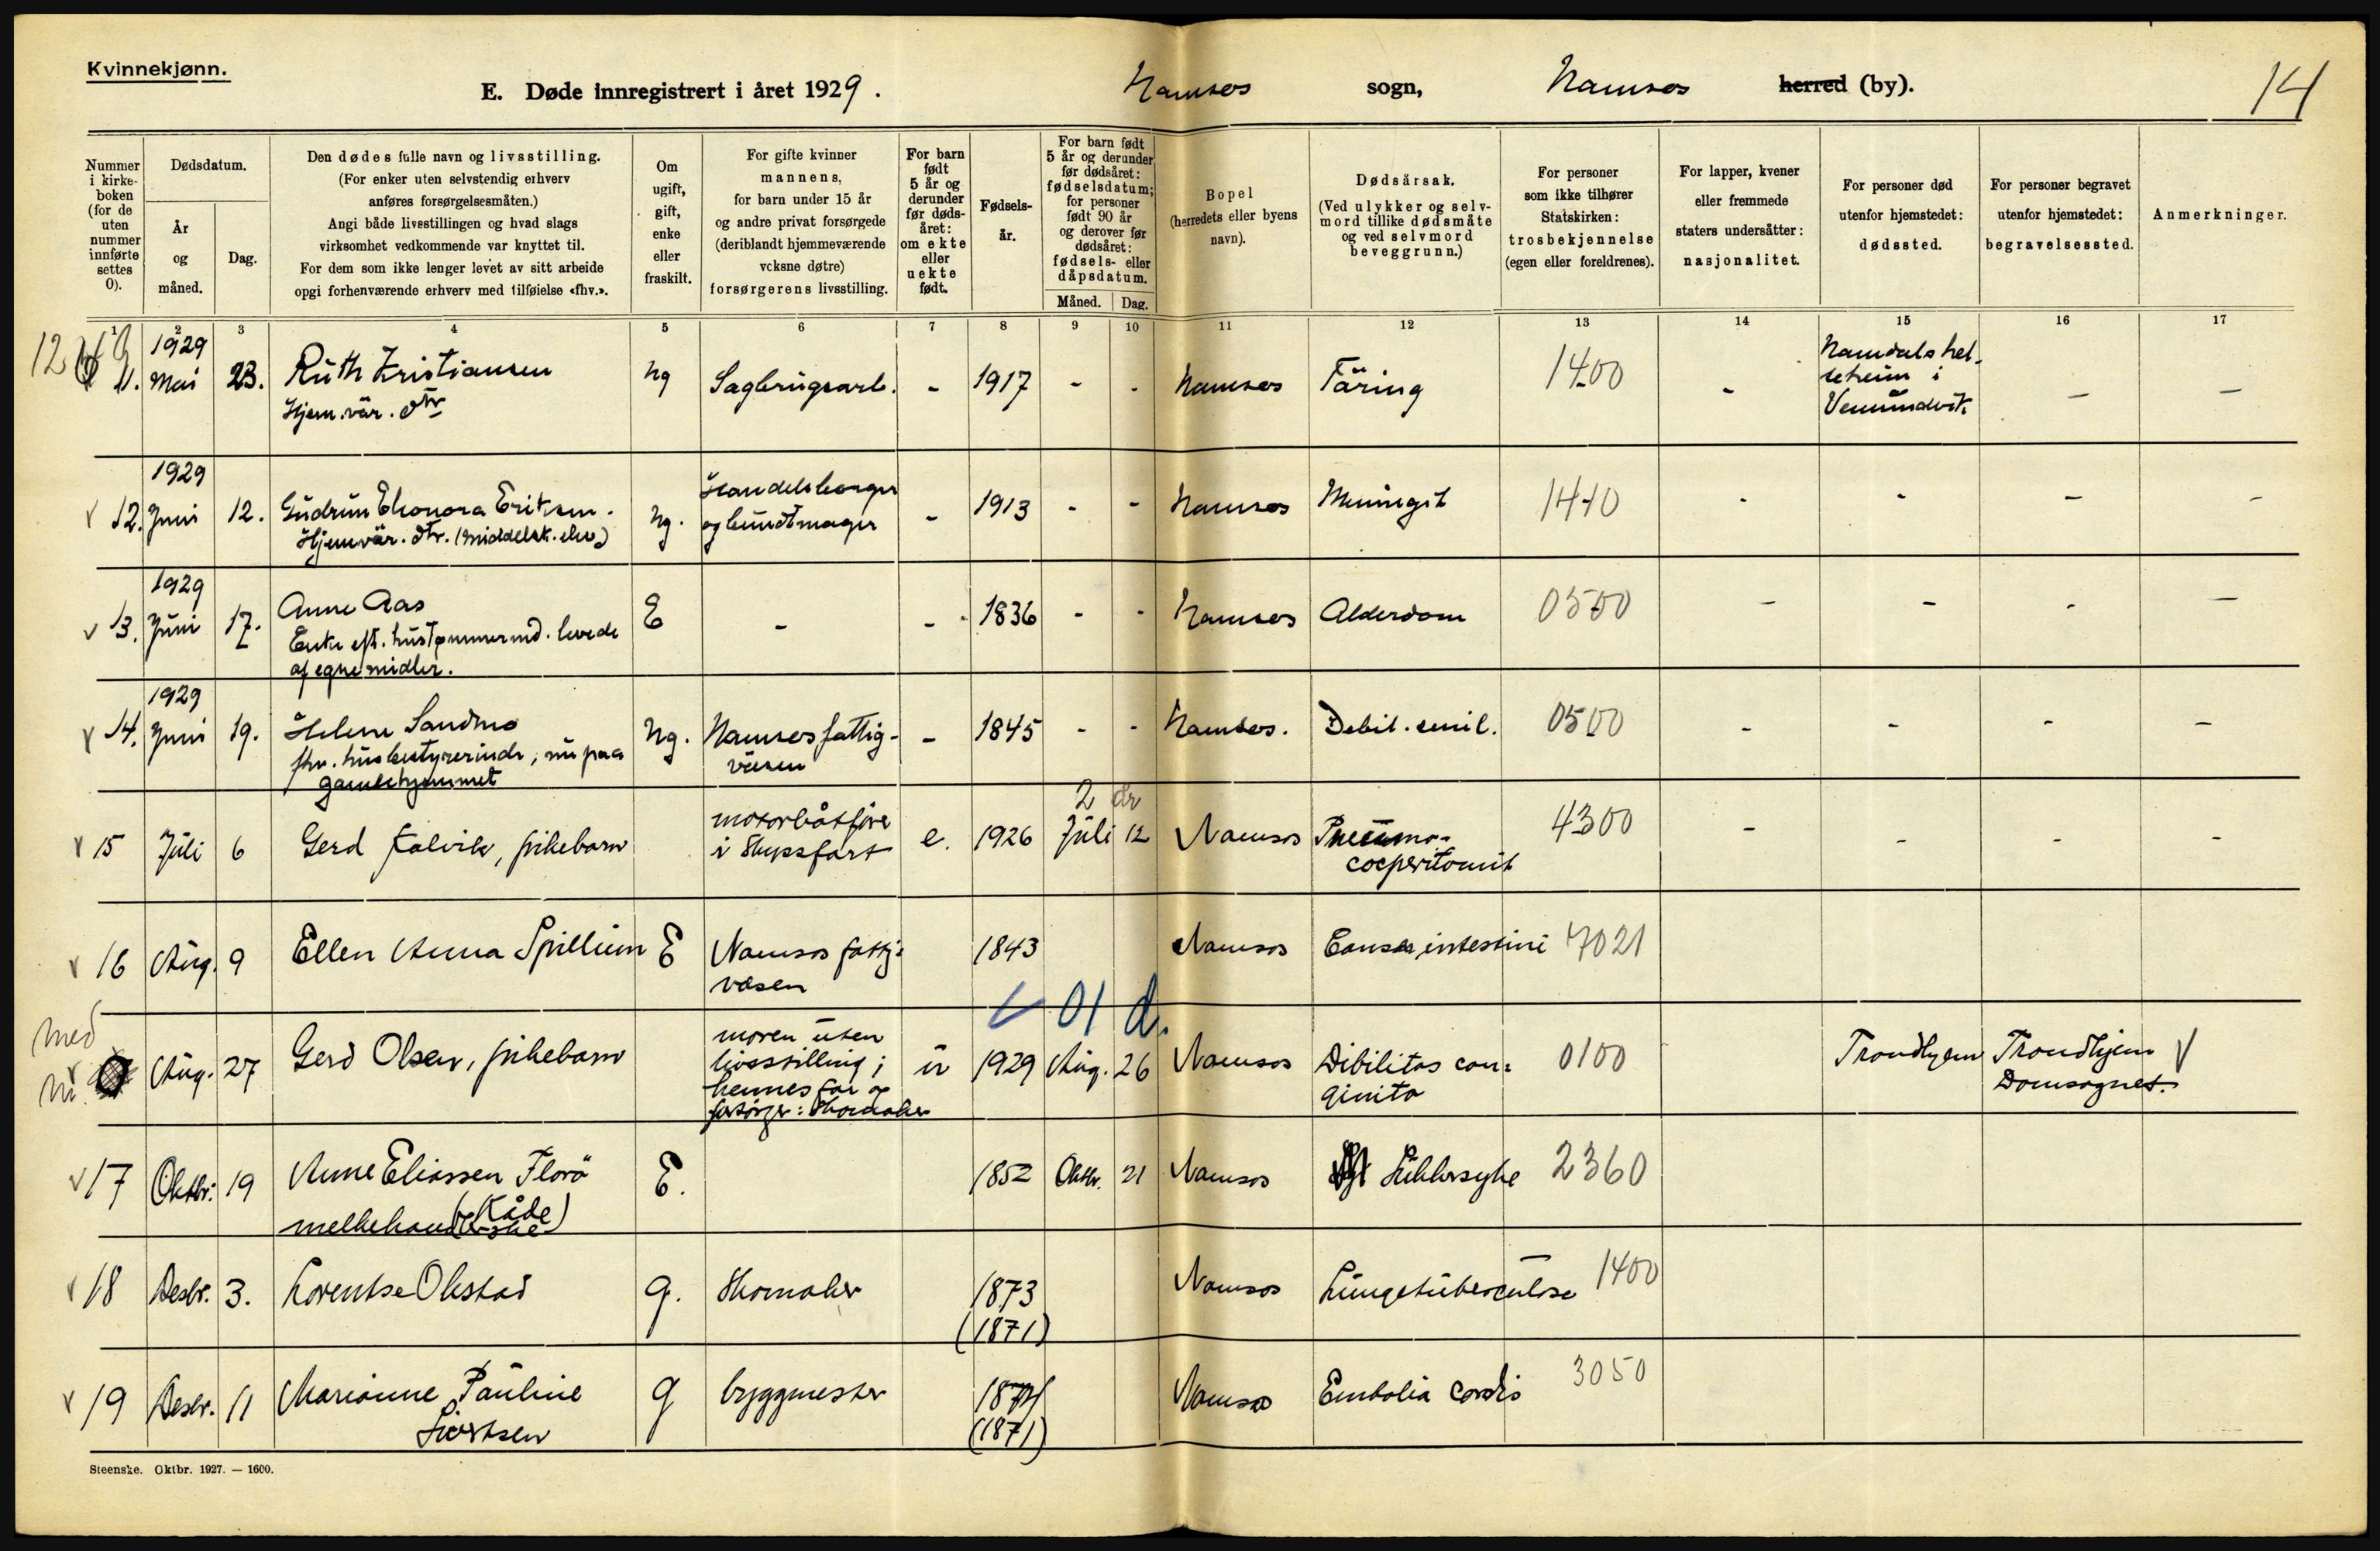 Kvinnekjønn.
E. Døde innregistrert i året 1929. Namsos sogn, Namsos herred (by). 14
Nummer i kirkeboken (for de uten nummer innførte settes 0).
Dødsdatum.
År og måned.
Dag.
Den dødes fulle navn og livsstilling.
(For enker uten selvstendig erhverv
anføres forsørgelsesmåten.)
Angi både livsstillingen og hvad slags
virksomhet vedkommende var knyttet til.
For dem som ikke lenger levet av sitt arbeide
opgi forhenværende erhverv med tilføielse «fhv.».
Om ugift, gift, enke eller fraskilt.
For gifte kvinner
mannens,
for barn under 15 år
og andre privat forsørgede
(deriblandt hjemmeværende
voksne døtre)
forsørgerens livsstilling.
For barn født 5 år og derunder før dødsåret: om ekte eller uekte født.
Fødselsår.
For barn født 5 år og derunder før dødsåret: fødselsdatum; for personer født 90 år og derover før dødsåret: fødsels- eller dåpsdatum.
Måned. Dag.
Bopel
(herredets eller byens
navn).
Dødsårsak.
(Ved ulykker og selv-
mord tillike dødsmåte
og ved selvmord
beveggrunn.)
For personer
som ikke tilhører
Statskirken:
trosbekjennelse
(egen eller foreldrenes).
For lapper, kvener
eller fremmede
staters undersåtter:
nasjonalitet.
For personer død
utenfor hjemstedet:
dødssted.
For personer begravet
utenfor hjemstedet:
begravelsessted.
Anmerkninger.
1 2 3 4 5 6 7 8 9 10 11 12 13 14 15 16 17
12
1929
11. Mai 23. Ruth Kristiansen ug Sagbrugsarb. - 1917 - - Namsos Täring 1400 - Namdals hel-
Hjem.vär. dtr
seheim i
Vemundvik - -
1929
v 12. Juni 12. Gudrun Elionora Eriksen. ug. Handelsborger - 1913 - - Namsos Meningit 1410 - - - -
Hjemvär. dtr. (middelsk. elev) og buntmager
1929
v 13. Juni 17. Anne Aas E - - 1836 - - Namsos Alderdom 0500 - - - -
Enke eft. hustømmermd. levede
af egne midler.
1929
v 14. Juni 19. Helene Sandmo ug. Namsos fattig- - 1845 - - Namsos. Debil. senil. 0500 - - - -
fhv. husbestyrerinde, nu paa väsen
gamlehjemmet
2 år
v 15 Juli 6 Gerd Kalvik, pikebarn motorbåtfører e. 1926 Juli 12 Namsos Pneumo- 4300 - - - -
i Skipsfart
cocperitonit
v 16 Aug. 9 Ellen Anna Spillum E Namsos fattig- 1843 Namsos Canser intestini 7021
vesen
v 01 d.
med
nr. 0 Aug. 27 Gerd Olsen, pikebarn moren uten u 1929 Aug. 26 Namsos Dibilitas con= 0100 Trondhjem Trondhjem V
livsstilling; ginita Domsognet.
hennes far og
forsørger: Skomaker
v 17 Oktbr. 19 Anne Eliassen Florö E. 1852 Oktbr. 21 Namsos Sukkersyke 2360
(Kåde)
melkehandlerske
v 18 Desbr. 3. Lorentse Olstad g. Skomaker 1873 Namsos Lungetuberculose 1400
(1871)
v 19 Desbr. 11 Marianne Pauline g byggmester 1871 Namsos Embolia cordis 3050
Sivertsen (1871)
Steenske. Oktbr. 1927. — 1600.